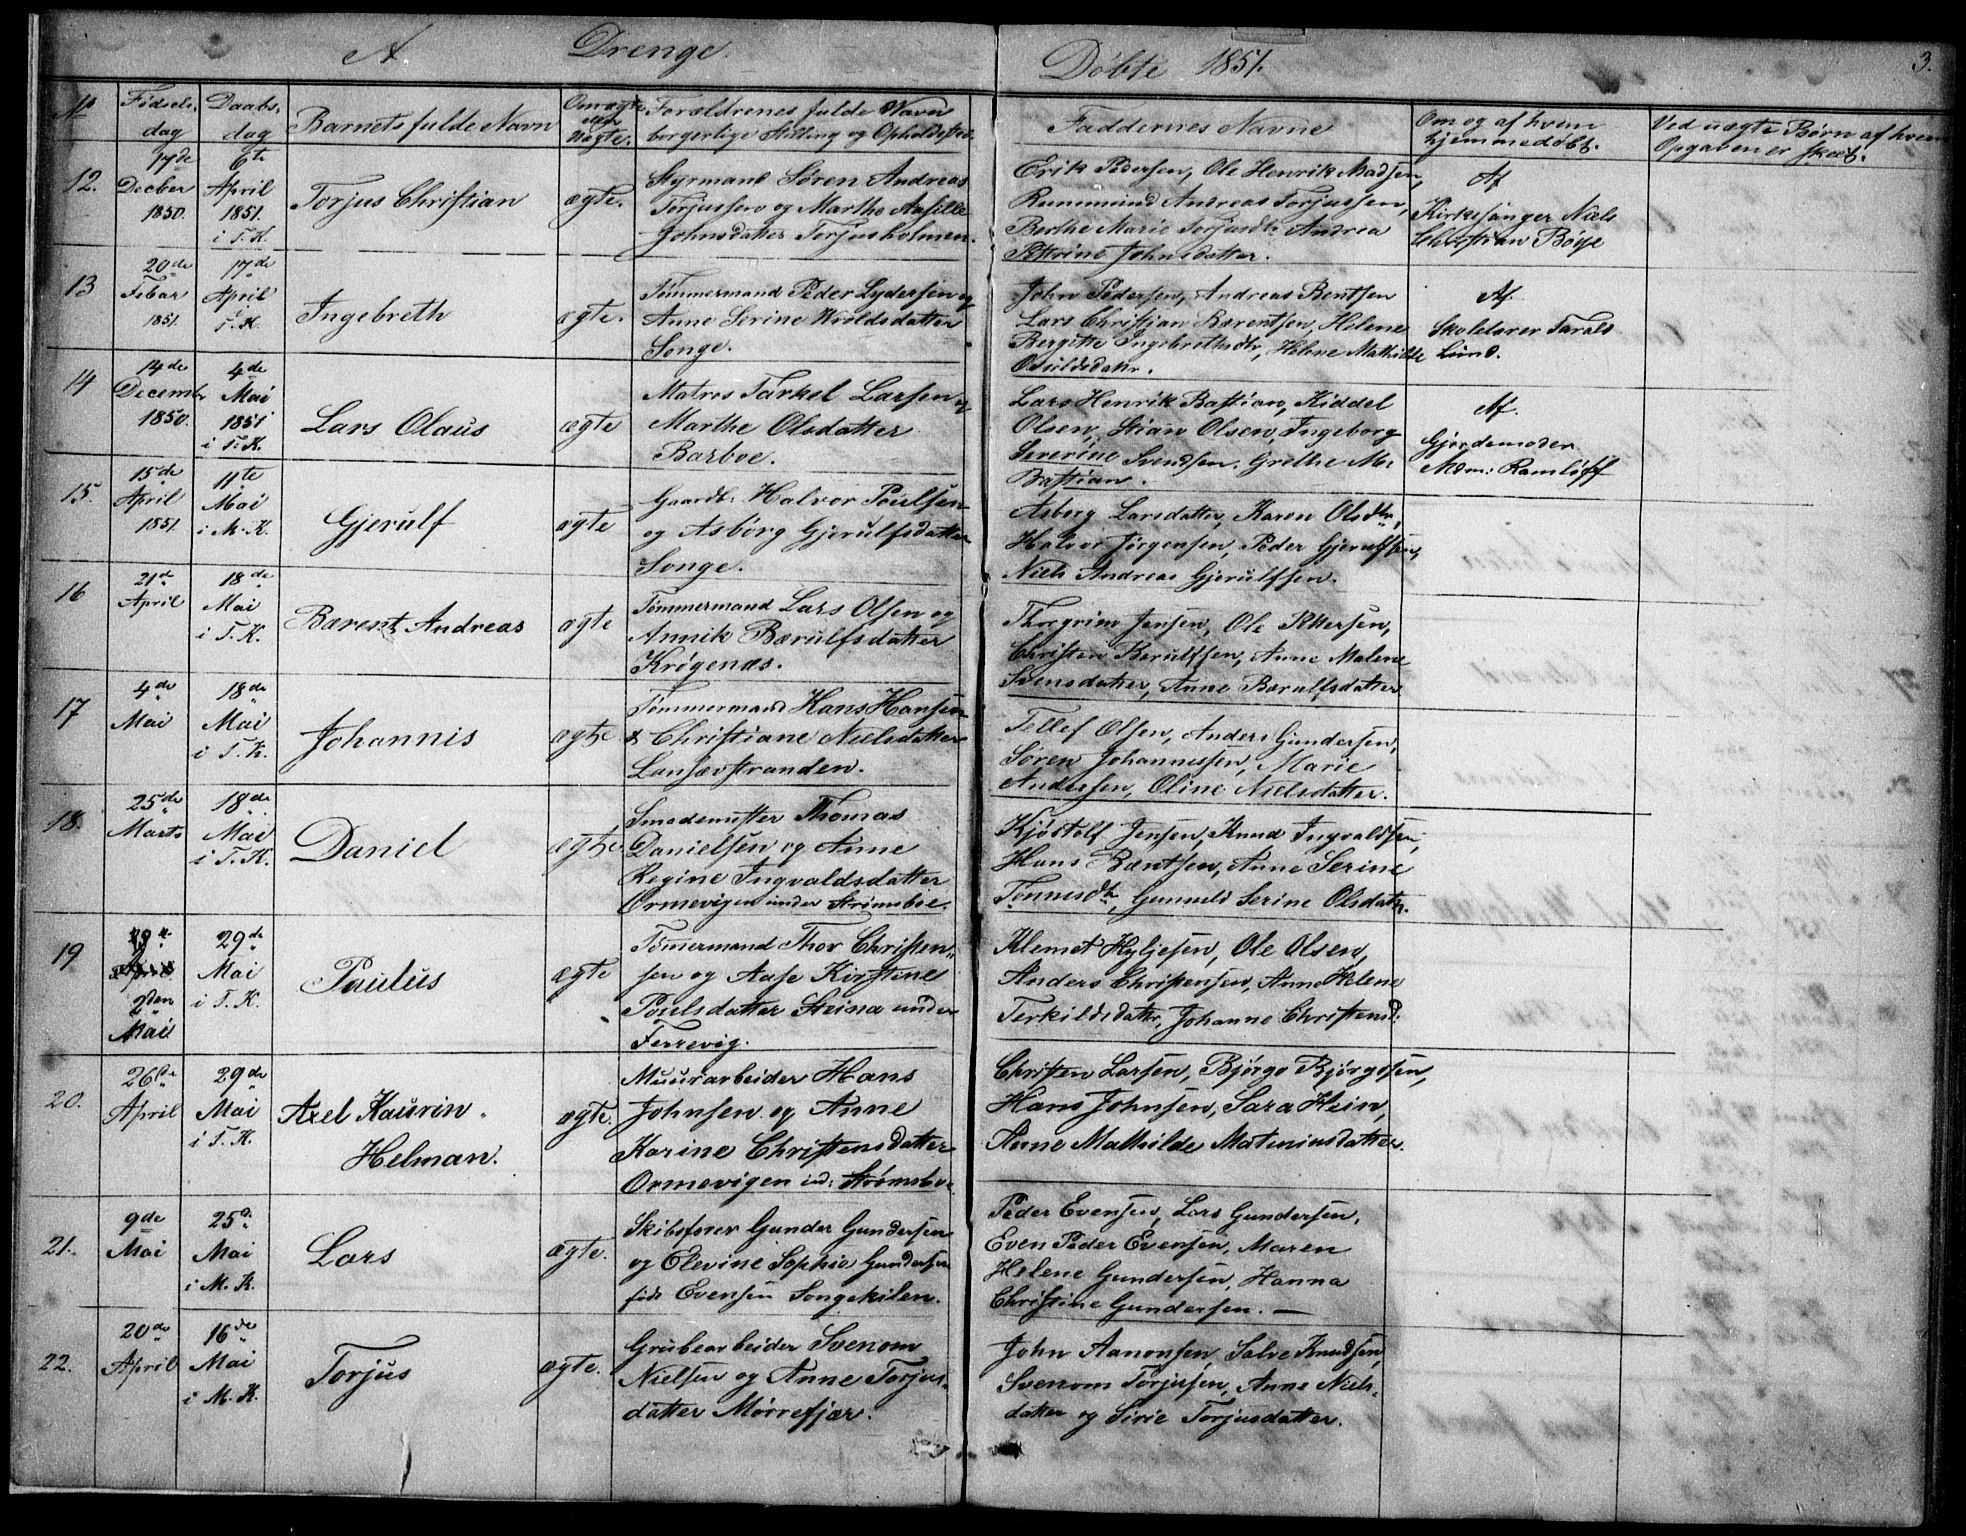 A Drenge. Døbte 1851. 3.
No
Fødsels-
dag
Daabs-
dag
Barnets fulde Navn
Om ægte
eller
uægte.
Forældrenes fulde Navn
borgerlige Stilling og Opholdssted.
Faddernes Navne
Om og af hvem
hjemmedøbt.
Ved uægte Børn af hvem
Opgaven er skeet.
12.
17de
Decber
1850.
6te
April
1851.
i T. K.
Torjus Christian
ægte.
Styrmand Søren Andreas
Torjussen og Marthe Aasille
Johnsdatter Torjusholmen.
Erik Pedersen, Ole Henrik Madsen,
Andreas Torjussen,
Berthe Marie Torjusdt. Andrea
Petrine Johnsdatter.
Af
Kirkesanger Niels
Christian Bøye
13
20de
Febar
1851.
17de
April
T. K.
Ingebreth
ægte.
Tømmermand Peder Lydersen og
Anne Serine Wroldsdatter
Songe.
John Pedersen, Andreas Bentsen
Lars Christian Bærentsen, Helene
Bergitte Ingebrethsdtr, Helene Mathilde
Osuldsdatr.
Af
Skolelærer Tarald
Lund.
14
14de
Decembr
1850.
4de
Mai
1851
i T. K.
Lars Olaus
ægte
Matros Tarkel Larsen og
Marthe Olsdatter
Barboe.
Lars Henrik Bastian, Kiddel
Olsen, Stian Olsen, Ingeborg
Severine Svendsen. Grethe M.
Bastian.
Af.
Gjordemoder
Mdm: Ramløff
15.
15de
April
1851.
11te
Mai
i M. K.
Gjerulf
ægte
Gaardb: Halvor Poulsen
og Asbørg Gjerulfsdatter
Songe.
Asberg Larsdatter, Karen Olsdtr,
Halvor Jørgensen, Peder Gjerulfsen,
Niels Andreas Gjerulfsen.
16
21de
April
18de
Mai
i T. K.
Bærent Andreas
ægte
Tømmermand Lars Olsen og
Annik Bærulfsdatter
Krøgenæs.
Thorgrim Jensen, Ole Pettersen,
Christen Berulfsen, Anne Malene
Svensdatter, Anne Bærulfsdatter
17
4de
Mai
18de
Mai
i T. K.
Johannis
ægte
Tømmermand Hans Hansen
& Christiane Nielsdatter
Langsævstranden.
Tellef Olsen, Anders Gundersen,
Søren Johannessen, Marie
Andersen, Oline Nielsdatter.
18.
25de
Marts
18de
Mai
i T. K.
Daniel
ægte.
Smedemester Thomas
Danielsen og Anne
Regine Ingvaldsdatter
Ormevigen under Strømsboe.
Kjøstolf Jensen, Knud Ingvaldsen,
Hans Bentsen, Anne Serine
Tønnesdtr, Gunneld Serine Olsdatr.
19
2den
Mai
29de
Mai
i T. K.
Paulus
ægte
Tømermand Thor Christen-
sen og Aase Kirstine
Poulsdatter Steina under
Ferrevig.
Klemet Hyljesen, Ole Olsen,
Anders Christensen, Anne Helene
Terkildsdattr, Johanne Christensd:
20.
26de
April
29de
Mai
i T. K.
Axel Kaurin
Helman.
ægte.
Muurarbeider Hans
Johnsen og Anne
Karine Christensdatter
Ormevigen und: Strømsboe
Christen Larsen, Bjørgo Bjørgosen,
Hans Johnsen, Sara Hein,
Anne Mathilde Mateniusdatter.
21.
9de
Mai
25de
Mai
i M. K.
Lars
ægte.
Skibsfører Gunder Gundersen
og Elevine Sophie Gundersen
født Evensen Songekilen.
Peder Evensen, Lars Gundersen,
Even Peder Evensen, Maren
Helene Gundersen, Hanna
Christine Gundersen. —
22.
20de
April
16de
Mai
i M. K.
Torjus
ægte.
Grubearbeider Svenom
Nielsen og Anne Torjus-
datter Mørrefjær.
John Aanonsen, Salve Knudsen,
Svenom Torjusen, Anne Niels-
datter og Sirie Torjusdatter.